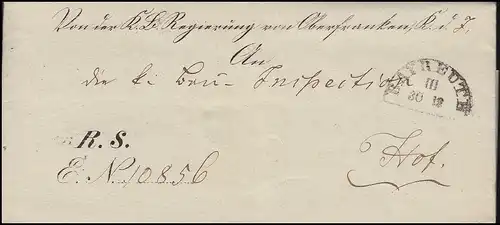 Von der K. B. Regierung von Oberfranken, K. d. I.
An
die k. Bau-Inspection
BAYREUTH
III
30 12
R. S.
E. N. 10856
Hof.